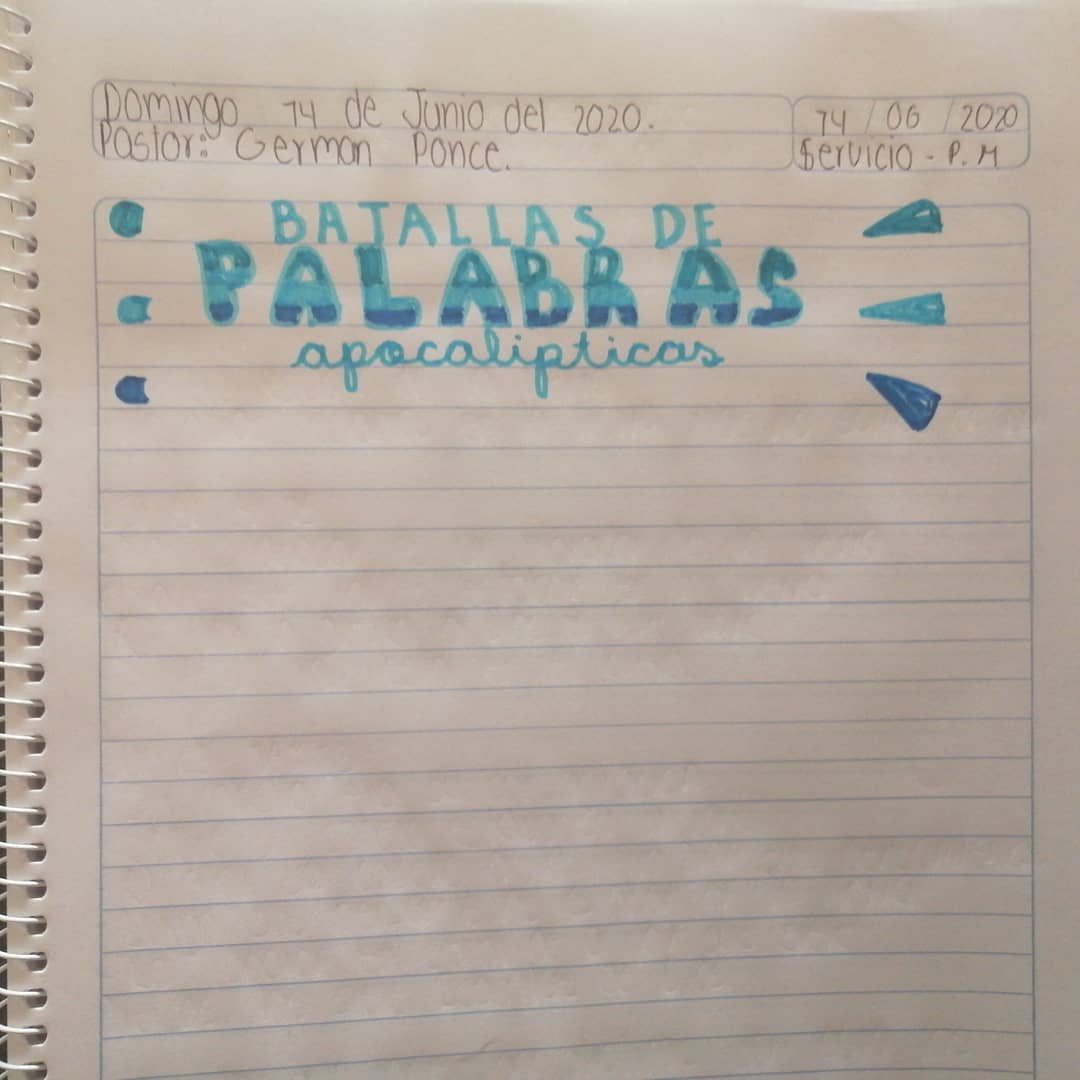 Domingo 14 de Junio del 2020.
14 / 06 / 2020
Pastor: German Ponce.
Servicio - P. M
BATALLAS DE
PALABRAS
apocalipticas